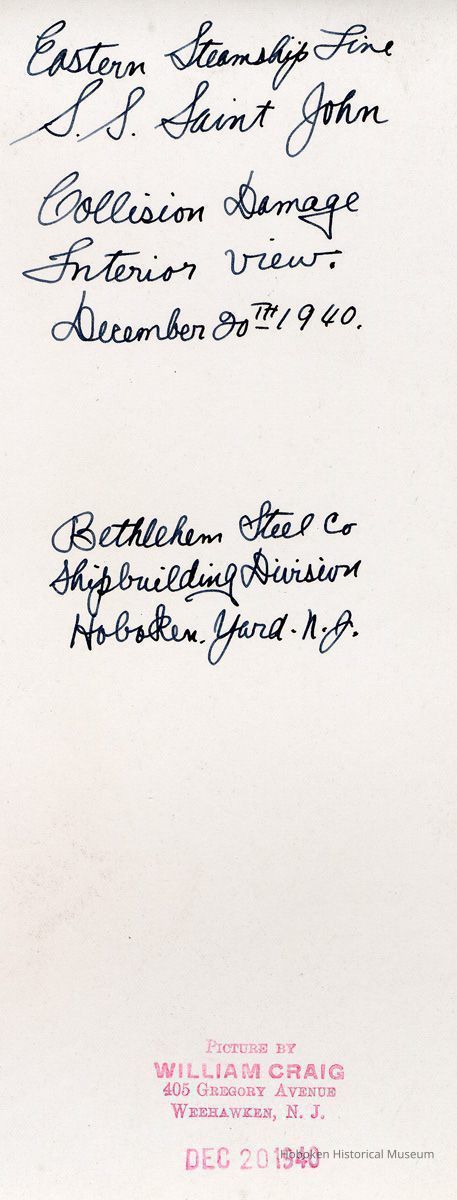 Eastern Steamship Line
S. S. Saint John
Collision Damage
Interior View.
December 20TH 1940.
Bethlehem Steel Co
Shipbuilding Division
Hoboken. Yard. N. J.
PICTURE BY
WILLIAM CRAIG
405 GREGORY AVENUE
WEEHAWKEN, N. J.
DEC 20 1940
Hoboken Historical Museum